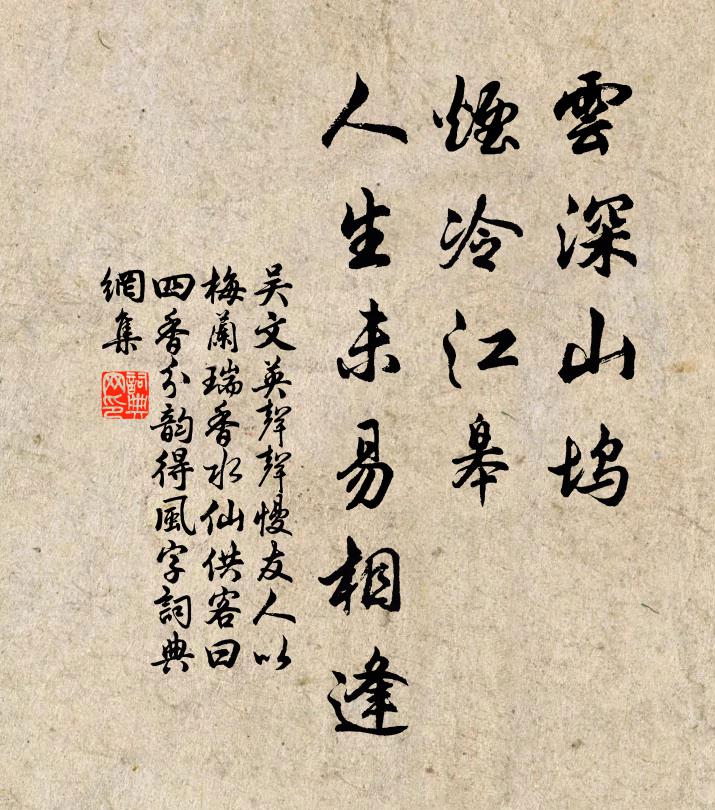 雲深山塢
煙冷江皋
人生未易相逢
吴文英聲聲慢友人以
梅蘭瑞香水仙供客曰
四香分韵得風字詞典
網集
詞典網印